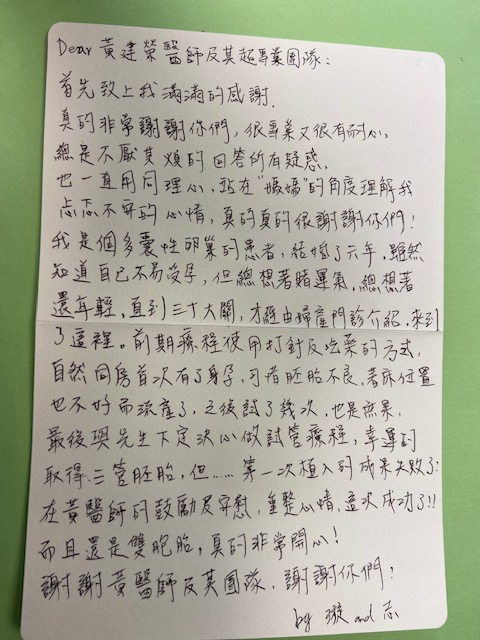 Dear 黃建榮醫師及其超專業團隊：
首先致上我滿滿的感謝.
真的非常謝謝你們，很專業又很有耐心.
總是不厭其煩的回答所有疑惑.
也一直用同理心，站在"媽媽"的角度理解我
忐忑不安的心情，真的真的很謝謝你們！
我是個多囊性卵巢的患者，結婚了六年，雖然
知道自己不易受孕，但總想著賭運氣，總想著
還年輕，直到三十大關，才經由婦產門診介紹，來到
了這裡。前期療程使用打針及吃藥的方式，
自然同房首次有了身孕，可惜胚胎不良、著床位置
也不好而流產了，之後試了幾次，也是無果，
最後與先生下定決心做試管療程，幸運的
取得三管胚胎，但......第一次植入的成果失敗了；
在黃醫師的鼓勵及安慰，重整心情，這次成功了!!
而且還是雙胞胎，真的非常開心！
謝謝黃醫師及其團隊，謝謝你們！
by 璇 and 志